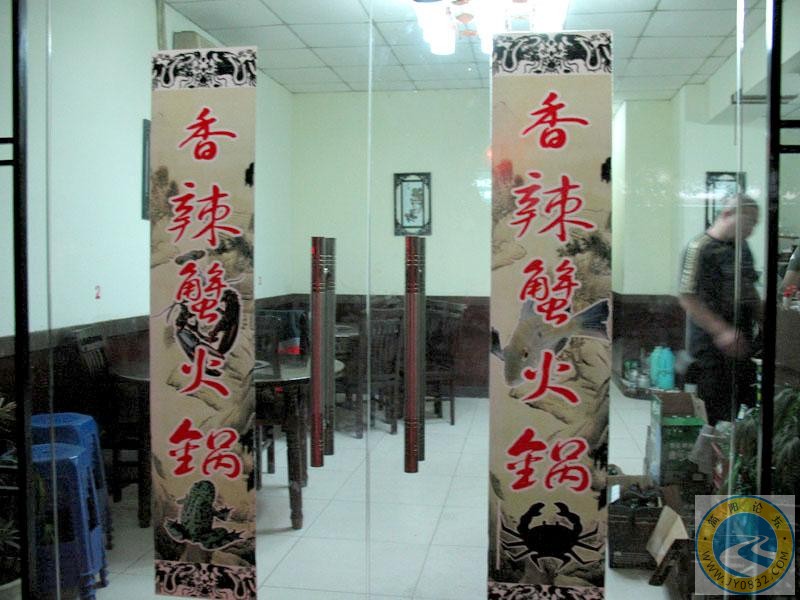 香辣蟹火锅
香辣蟹火鍋
2
简阳论坛
WWW.JY0832.COM